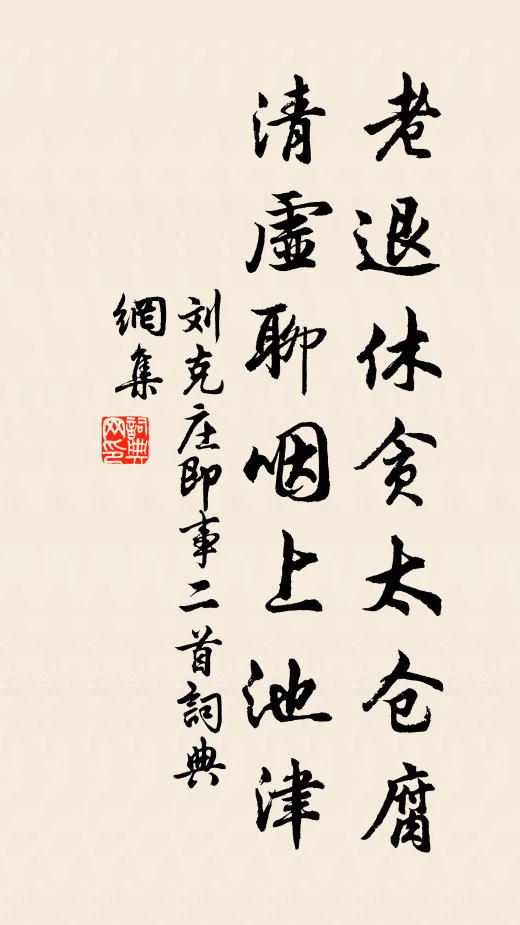 老退休贪太仓腐
清虚聊咽上池津
刘克庄即事二首詞典
網集
詞典
网印